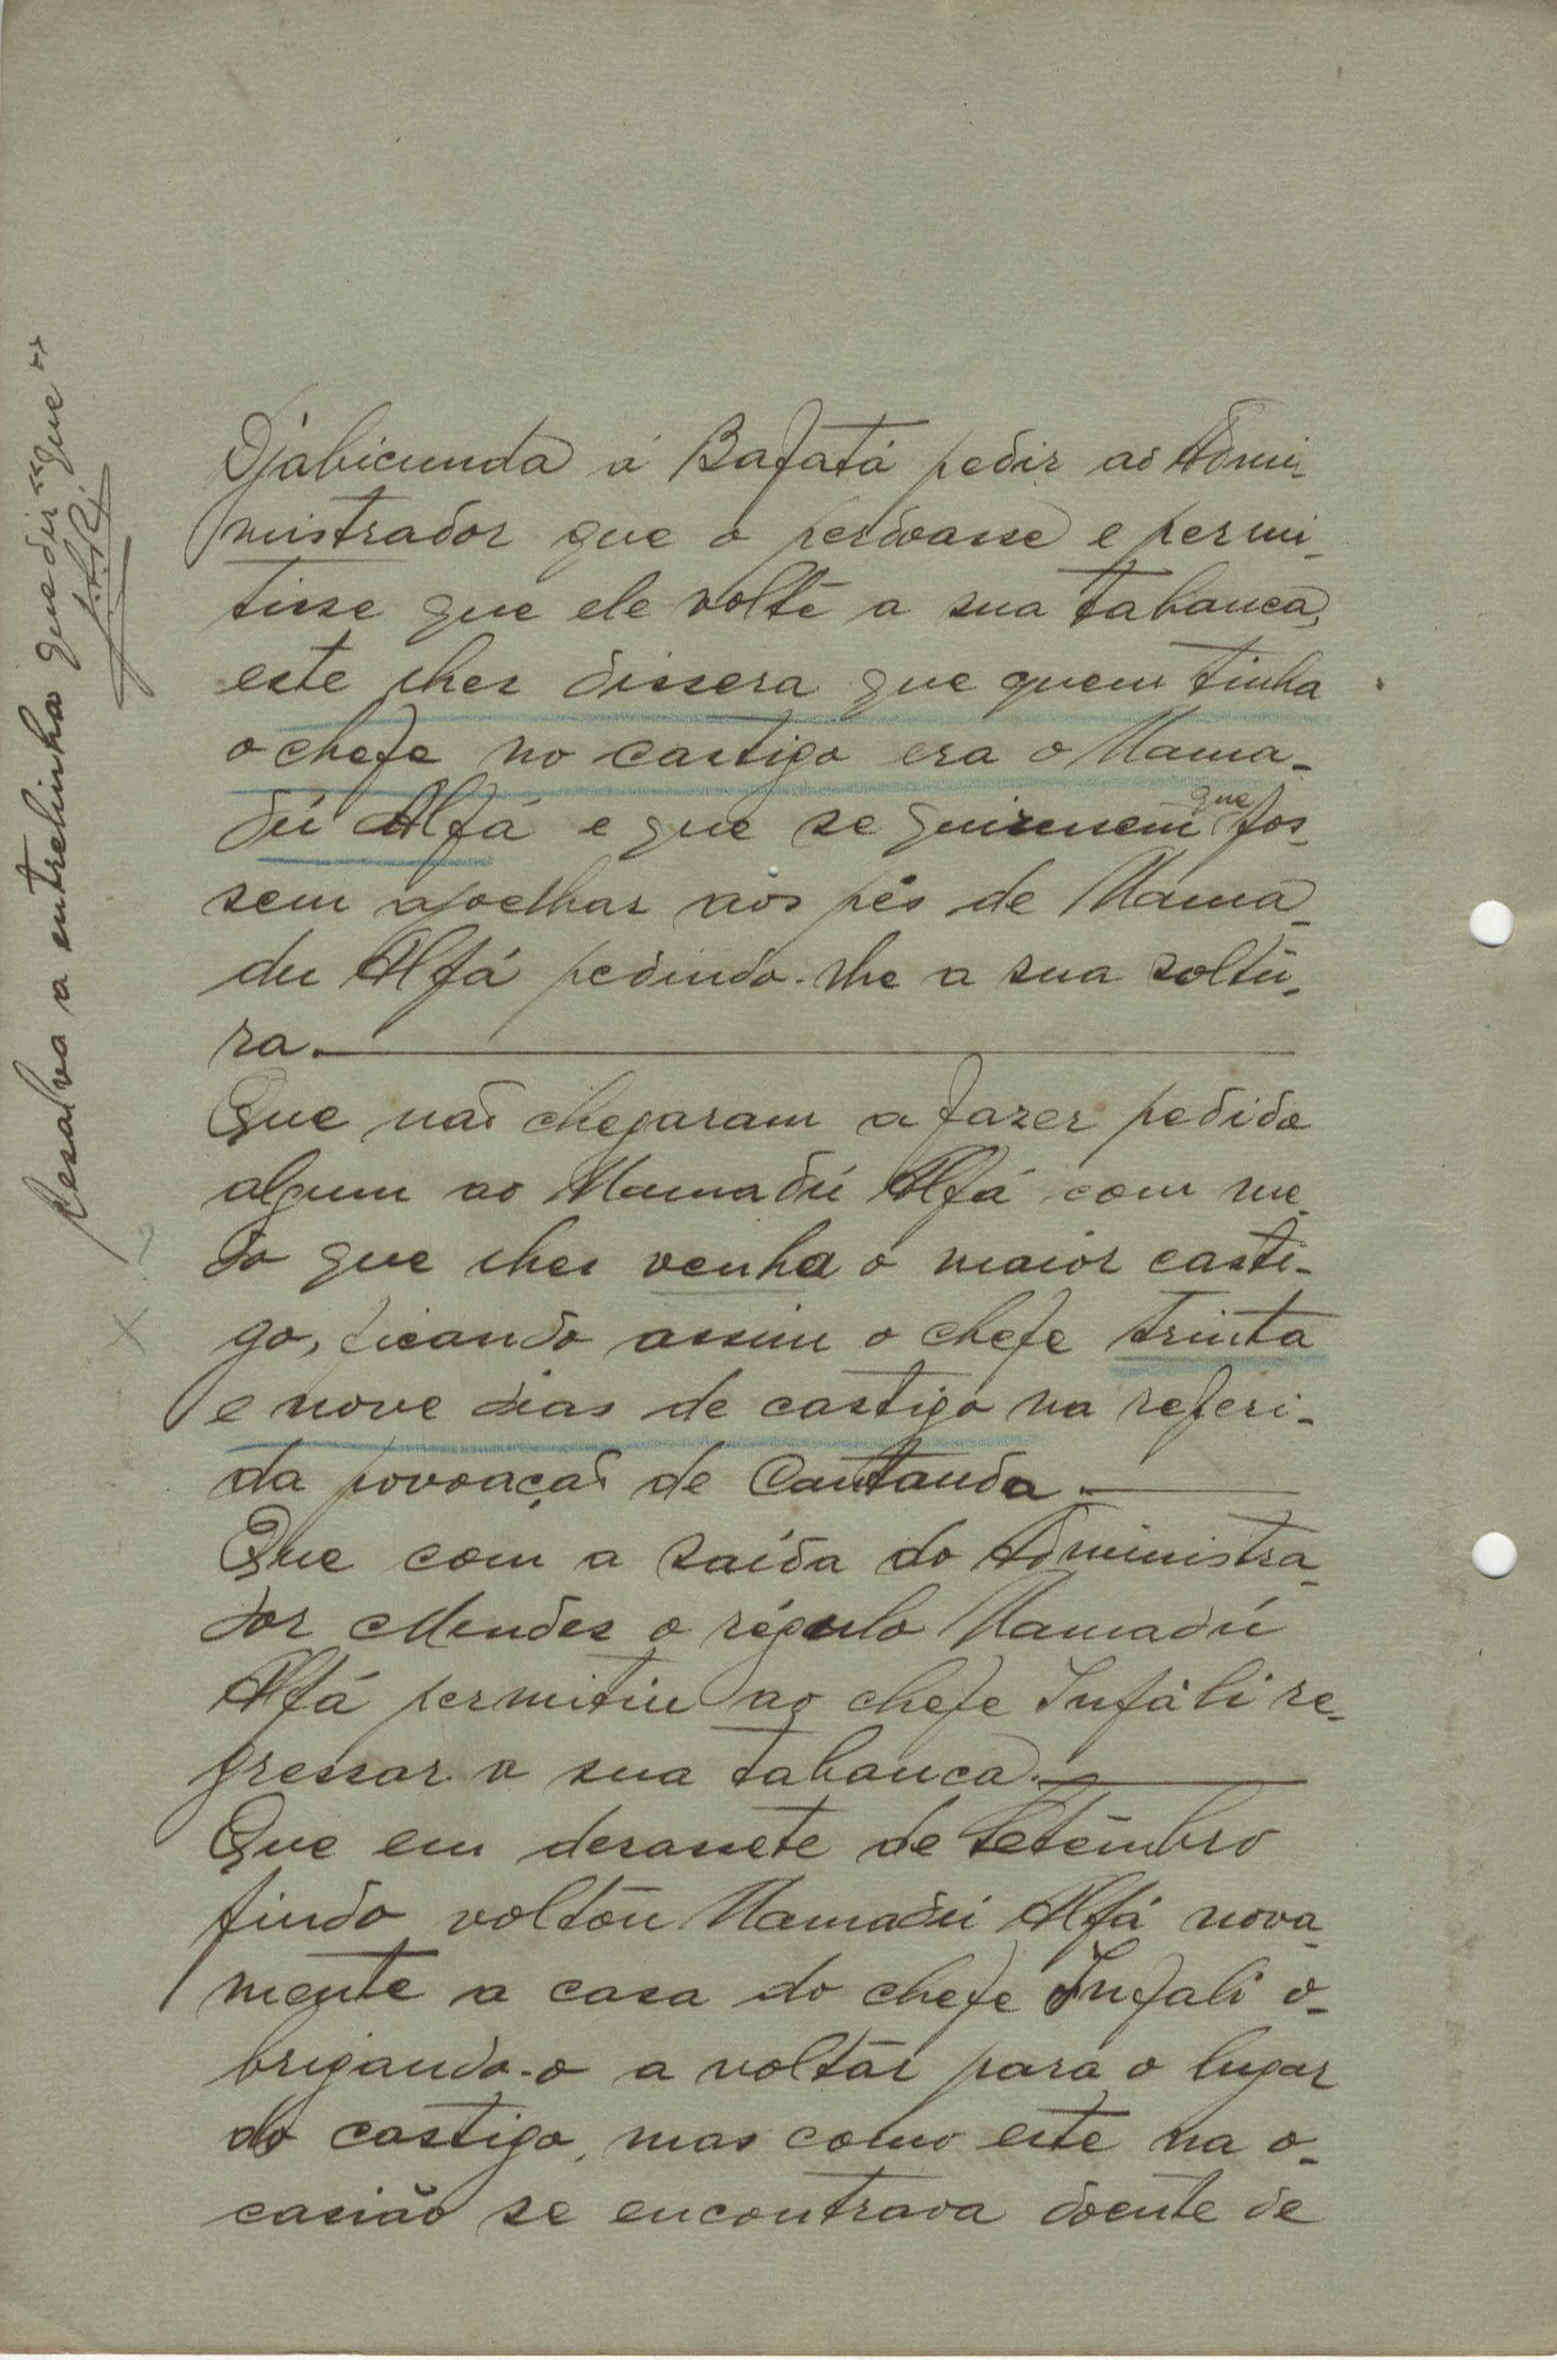 Djabicunda á Bafatá pedir ao Admi-
nistrador que o perdoasse e permi-
tisse que ele volte a sua tabanca,
este lhes dissera que quem tinha
o chefe no castigo era o Mama-
dú Alfá e que se quizessem que fos-
sem ajoelhar aos pés de Mama-
du Alfá pedindo-lhe a sua soltu-
ra.
Que não chegaram a fazer pedido
algum ao Mamadú Alfá com me-
do que lhes venha o maior casti-
go, ficando assim o chefe trinta
e nove dias de castigo na referi-
da povoação de Cantanda.
Que com a saída do Administra-
dor Mendes o régulo Mamadú
Alfá permitiu ao chefe Infáli re-
gressar a sua tabanca.
Que em desassete de Setembro
findo voltou Mamadú Alfá nova-
mente a casa do chefe Infali o-
brigando-o a voltar para o lugar
do castigo, mas como este na o-
casião se encontrava doente de
Resalva a entrelinha que diz "que"